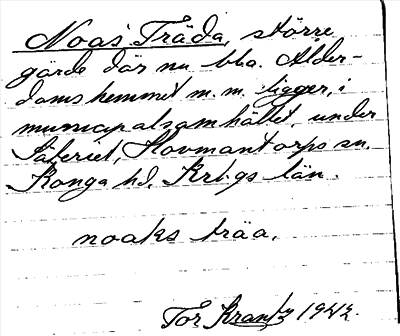 Noas Träda, större
gärde där nu bla. Ålder-
domshemmet m. m. ligger, i
municipalsamhället, under
Säteriet, Hovmantorps sn.
Konga hd, Krb:gs län.
noaks träa.
Tor Krantz 1942.